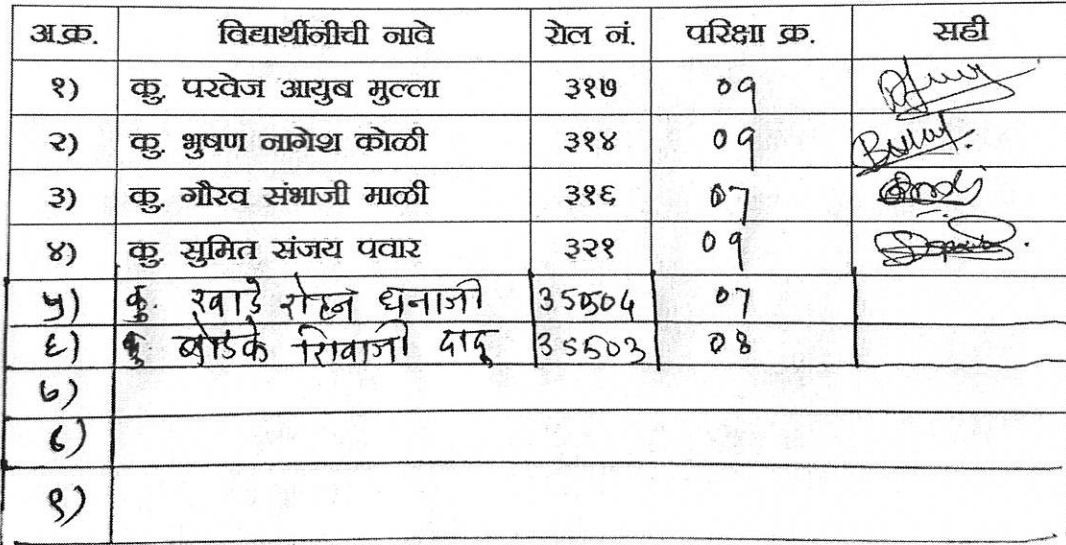 अ.क्र. विद्यार्थीनीची नावे रोल नं. परिक्षा क्र. सही
१) कु. परवेज आयुब मुल्ला ३१७ 09
२) कु. भुषण नागेश कोळी ३१४ 09
३) कु. गौरव संभाजी माळी ३१६ 07
४) कु. सुमित संजय पवार ३२१ 09
५) कु. खाडे रोहन धनाजी 35504 07
६) कु बोडके शिवाजी दादू 35503 08
७)
८)
९)